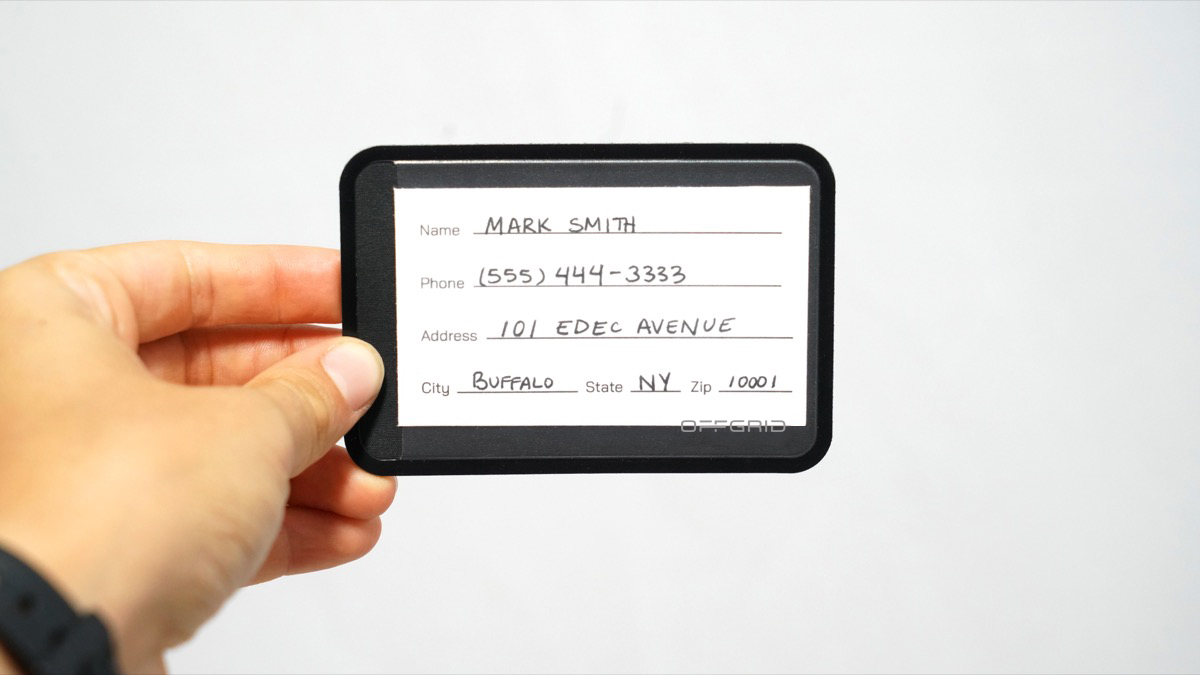 Name MARK SMITH
Phone (555) 444-3333
Address 101 EDEC AVENUE
City BUFFALO State NY Zip 10001
OFFGRID